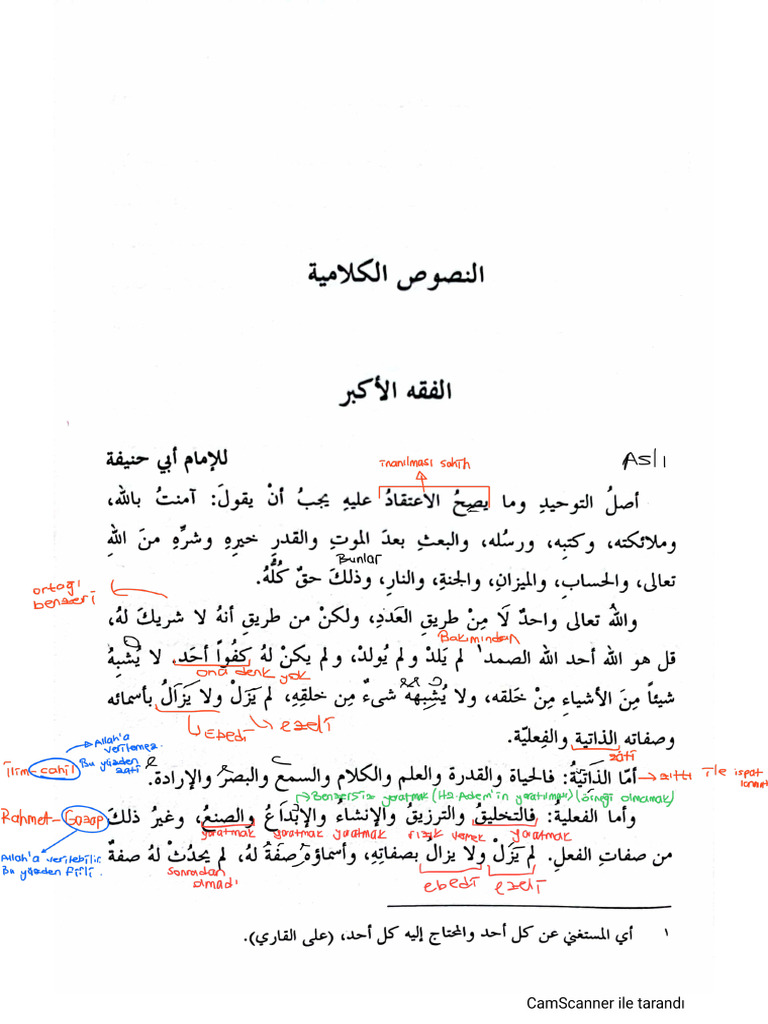 النصوص الكلامية
الفقه الأكبر
للإمام أبي حنيفة
Aslı
inanılması sahih
أصلُ التوحيدِ وما يصِحُ الأعتقادُ عليهِ يجبُ أنْ يقولَ: آمنتُ بالله،
وملائكته، وكتبِه، ورسُله، والبعثِ بعدَ الموتِ والقدرِ خيرِهِ وشرِّهِ منَ اللهِ
Bunlar
تعالى، والحسابِ، والميزانِ، والجنةِ، والنارِ، وذلكَ حقٌ كُلُّهُ.
ortağı
benzeri
واللهُ تعالى واحدٌ لَا مِنْ طريقِ العَددِ، ولكنْ من طريقِ أنهُ لا شريكَ لهُ،
Bakımından
قل هو الله أحد الله الصمد١ لم يَلدْ ولم يُولدْ، ولم يكنْ لهُ كفُواً أحَد. لا يُشبِهُ
ona denk yok
شيئاً مِنَ الأشياءِ مِنْ خَلقه، ولا يُشبِههُ شىءٌ مِن خلقِهِ، لم يَزَلْ ولا يَزَالُ بأسمائه
ebedî
ezelî
وصفاته الذاتية والفِعليّة.
zâtî
Allah'a
verilemez
Bu yüzden
zati
İlim-cahil
أمّا الذَاتيَّةُ: فالحياة والقدرة والعلم والكلام والسمع والبصر والإرادة.
zıttı ile ispat
Benzersiz yaratmak (Hz. Adem'in yaratılması) (örneği olmamak)
Rahmet-Gazap
وأما الفعليةُ: فالتخليقُ والترزيقُ والإنشاءُ والإبْدَاعُ والصنعُ، وغيرُ ذلكَ
yaratmak yaratmak yaratmak rızık vermek yaratmak
Allah'a verilebilir
Bu yüzden fiîlî
من صفاتِ الفعلِ. لم يَزَلْ ولا يزالُ بصفاتِهِ، وأسماؤه صفَةٌ لهُ، لم يحدُثْ لهُ صفةٌ
sonradan
olmadı
ebedî
ezelî
١ أي المستغني عن كل أحد والمحتاج إليه كل أحد، (على القاري).
CamScanner ile tarandı